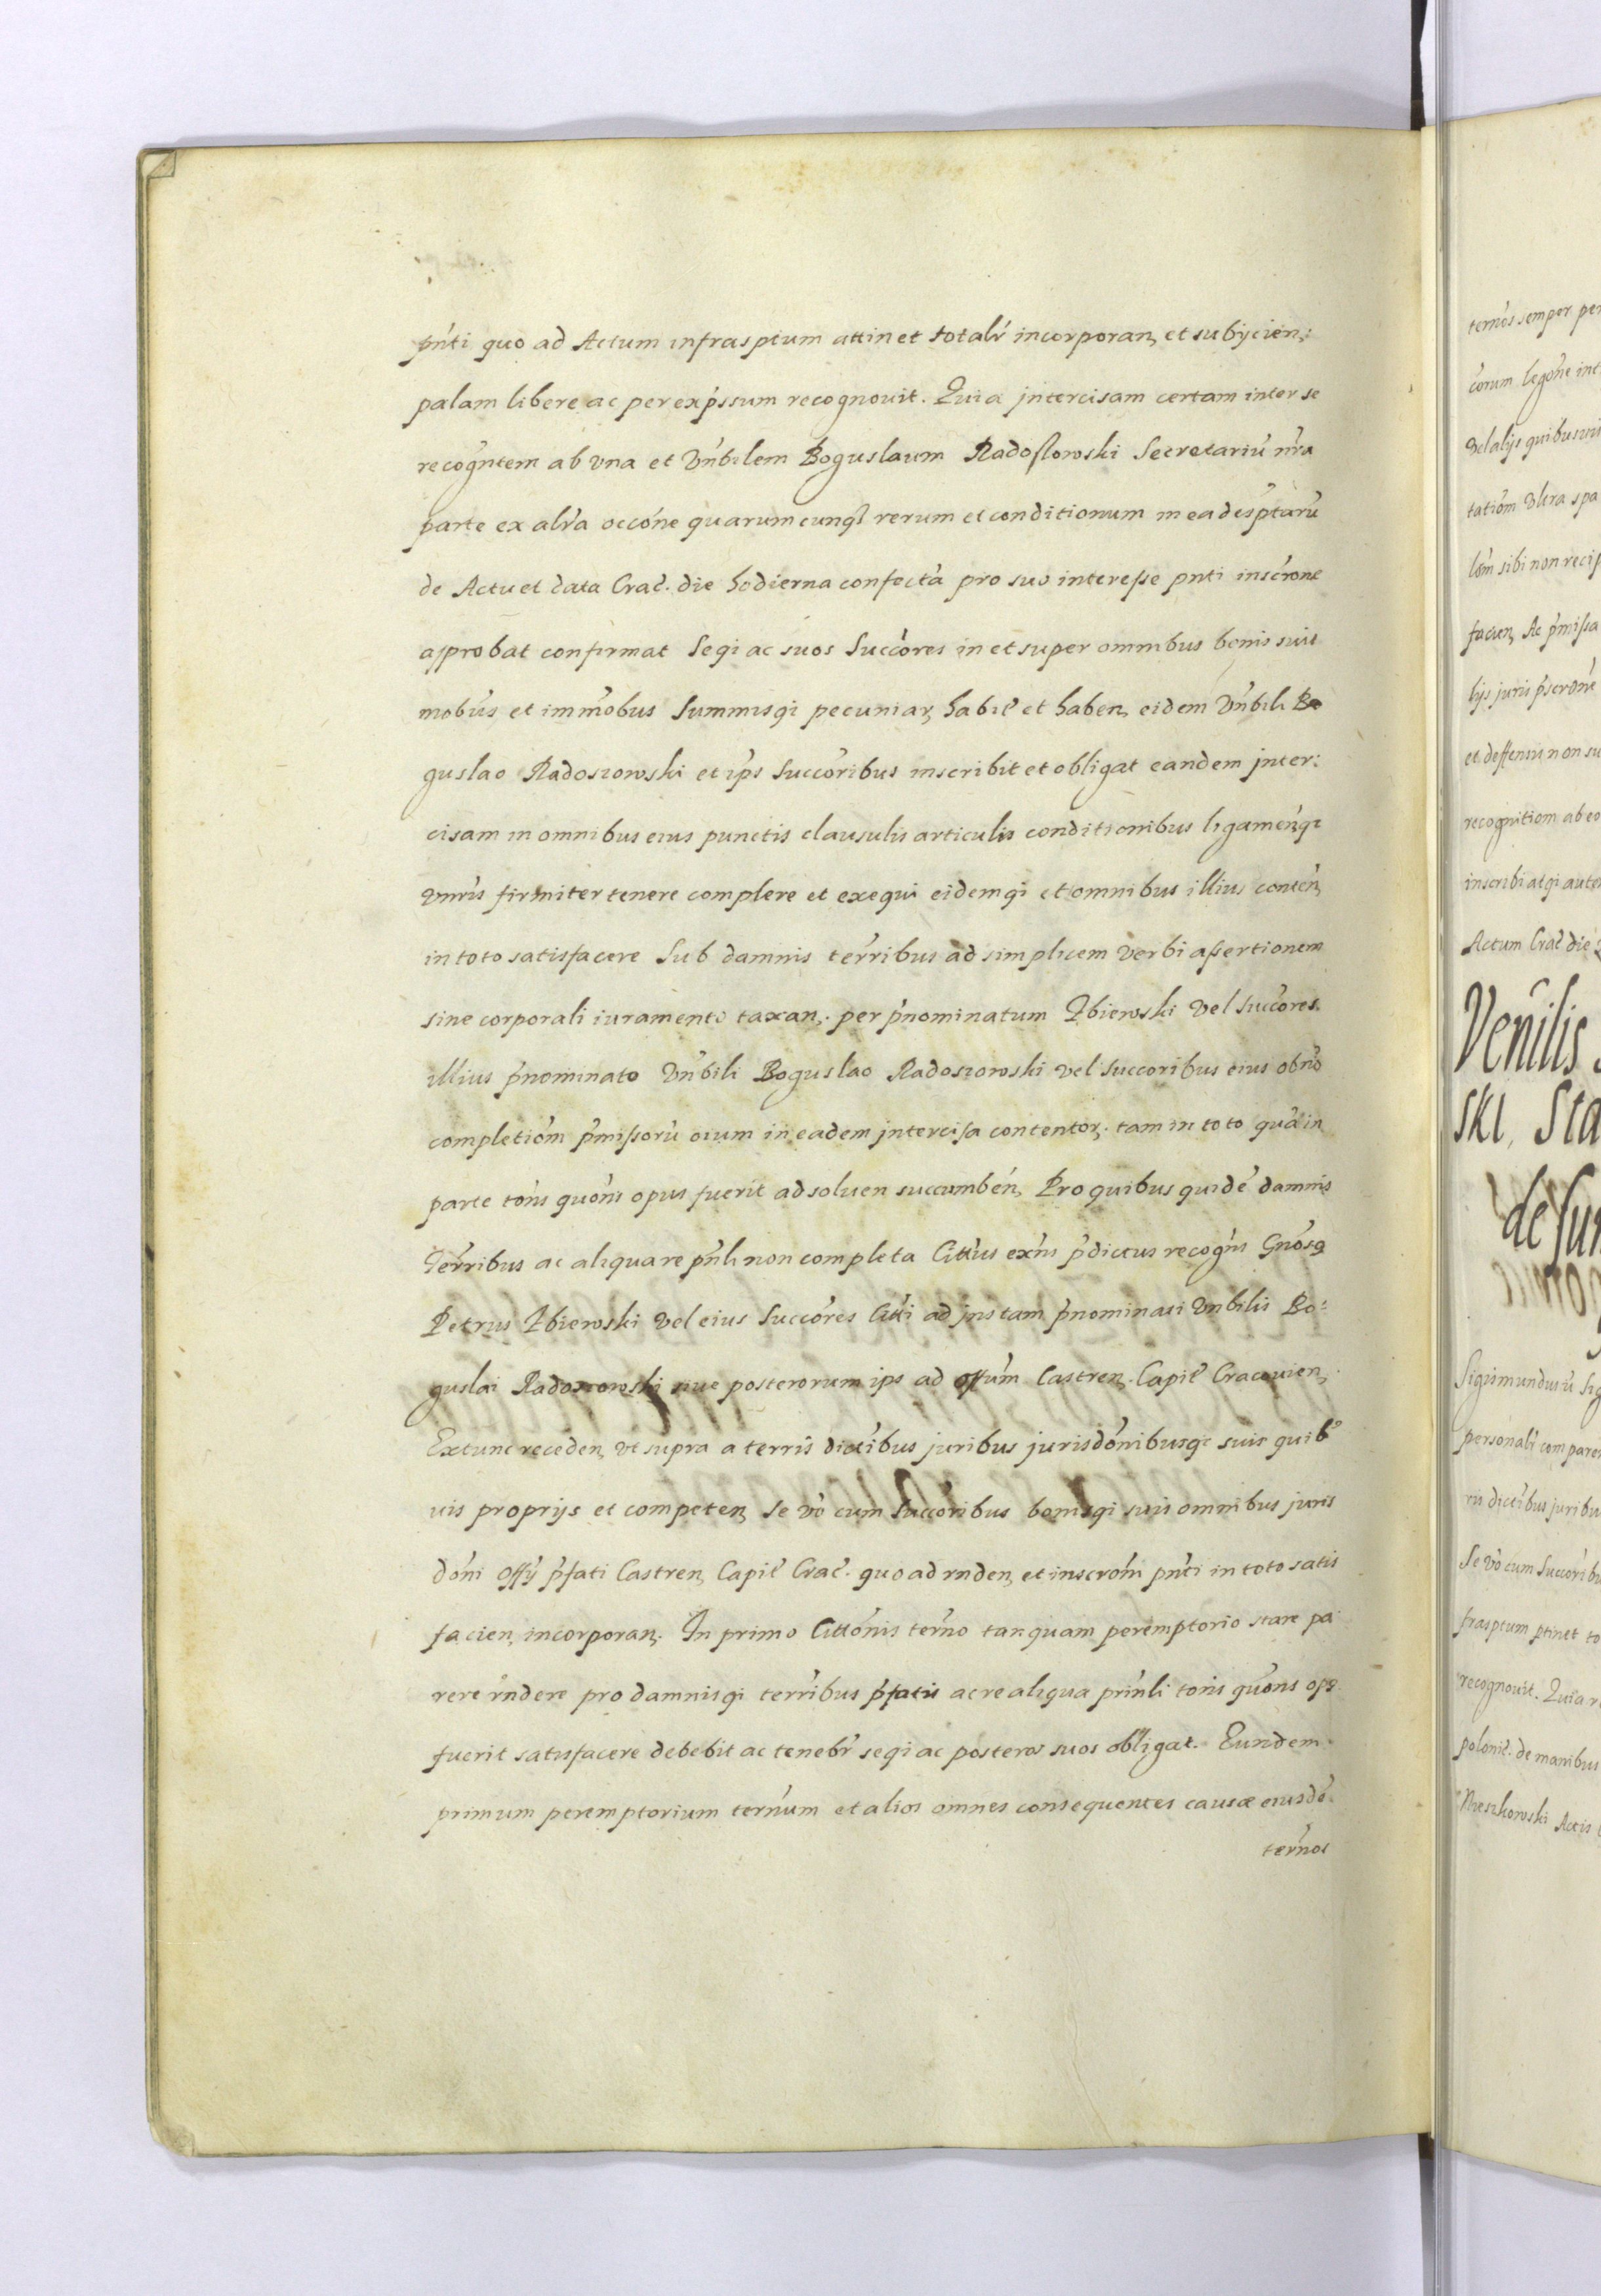 pńti quo ad Actum infrasptum attinet totalr incorporan, et subÿcien,:
palam libere ac per expssum recognouit. Quia jntercisam certam inter se
recogntem ab vna et Vnbilem Boguslaum Radossowski Secretariū nra
parte ex altra occone quarumcunq rerum et conditionum in ea desptarū
de Actu et data Crac. die hodierna confecta pro suo interesse pnti inscrone
approbat confirmat Seqi ac suos Succores in et super omnibus bonis suis
mobus et immobus Summisqi pecuniar, habit et haben, eidem Vnbili Bo
guslao Radoszowski et ips succoribus inscribit et obligat eandem jnter:
cisam in omnibus eius punctis clausulis articulis conditionibus ligamenqi
vnris firmiter tenere complere et exequi eidemqi et omnibus illius conten,
in toto satisfacere Sub damnis terribus ad simplicem verbi assertionem
sine corporali iuramento taxan,. per pnominatum Zbierski vel succores.
illius pnominato Vnbili Boguslao Radoszowski vel succoribus eius obno
completiom pmissorū oium in eadem jntercisa contentor,. tam in toto quā in
parte tois quois opus fuerit ad soluen succumben, Pro quibus quidē damnis
Terribus ac aliqua re pnli non completa Cittus exns pdictus recogns Gnosq
Petrus Zbierski vel eius Succores Citti ad jnstam pnominati Vnbilis Bo:
guslai Radoszowski siue posterorum ips ad offum Castren,. Capit Cracouien,.
Extunc receden, vt supra a terris dictibus juribus jurisdonibusqi suis quib
uis proprÿs et competen, se vo cum succoribus bonisqi suis omnibus juris
doni offÿ pfati Castren, Capit Crac. quo ad rnden, et inscrom pnti in toto satis
facien, incorporan,. In primo Cittonis terno tanquam peremptorio stare pa
rere rndere pro damnisqi terribus pfatis ac re aliqua prinli tois quons op9
fuerit satisfacere debebit ac tenebr seqi ac posteros suos obligat. Eundem
primum peremptorium ternum et alios omnes consequentes causæ eiusdē.
ternos
ternos semper per
corum legone int
Vel alÿs quibusuis
tatiom Vltra spa
lom sibi non recip
facien, Ac pmissa
lÿs juris pscrone
et deffensis non su
recognitiom ab eo
inscribi atqi aute
Actum Crac die
Venilis
ski, Sta
de sun
Sigismundus
personalr compare
ris dictibus juribu
Se vo cum succoribu
frasptum ptinet to
recognouit. Quia r
polonic. de manibus
Mieszkowski Actis